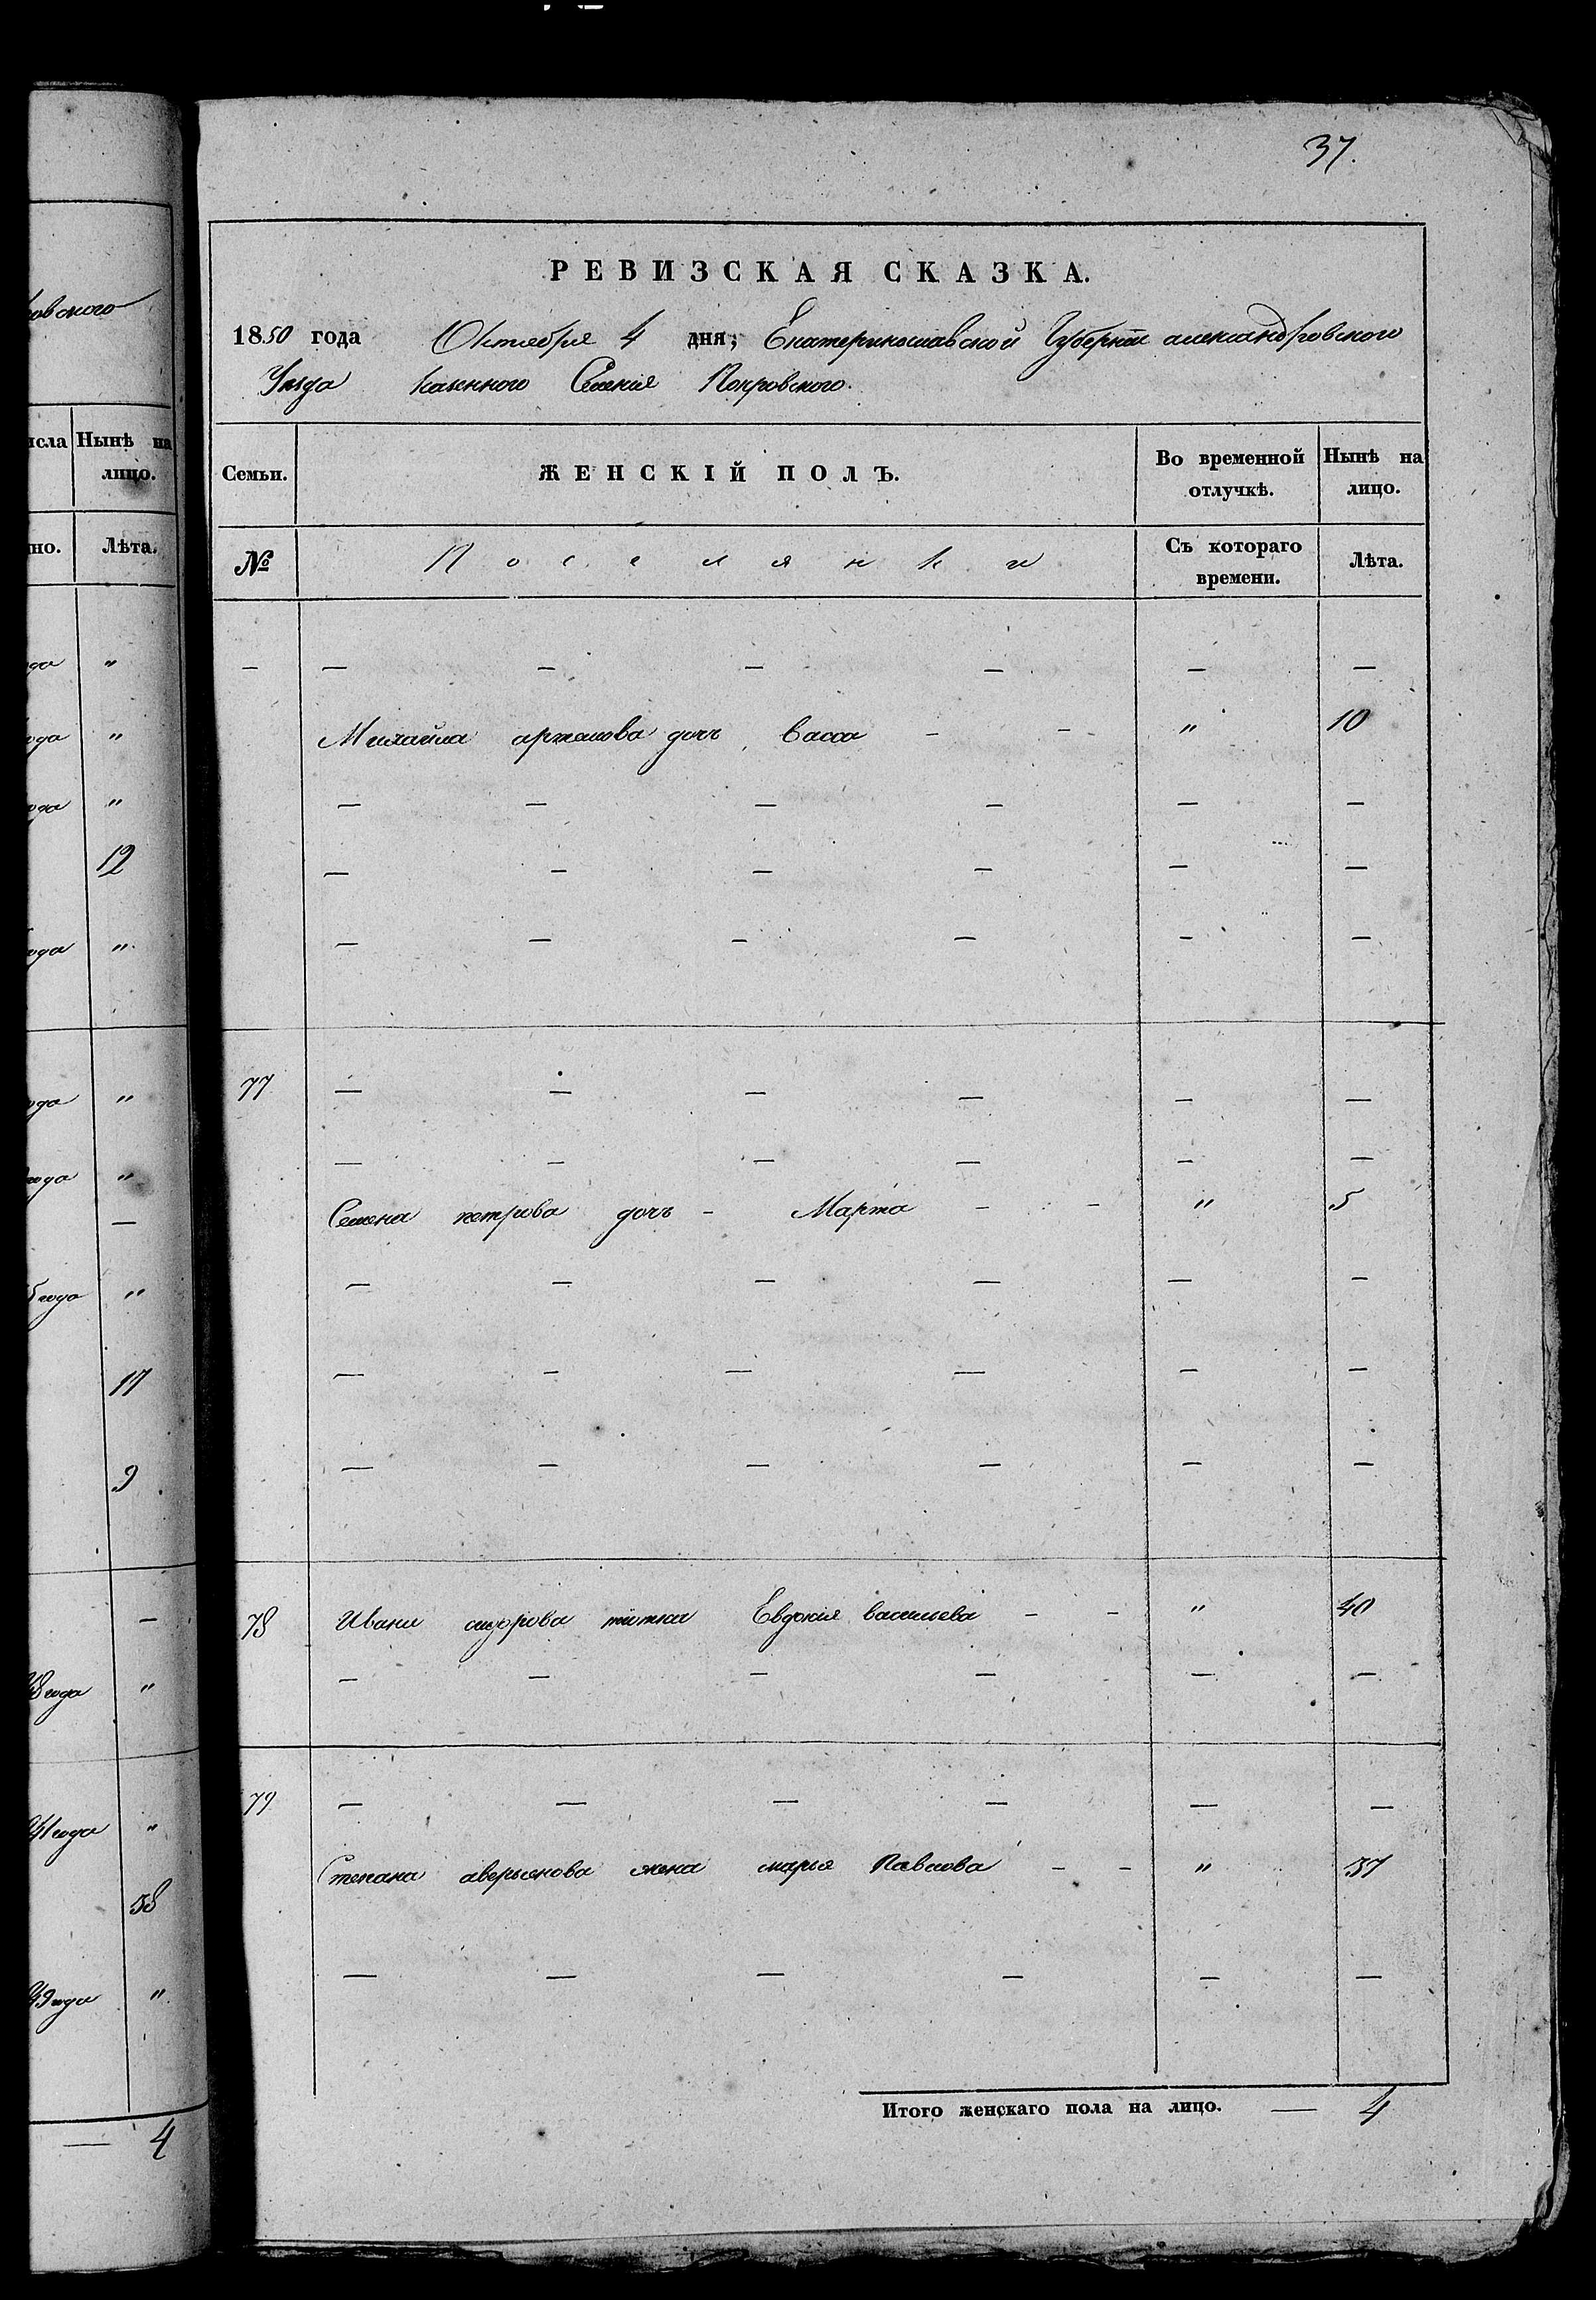 37.
РЕВИЗСКАЯ СКАЗКА.
1850 года Октября 4 дня; Екатеринославской Губернии александровского
Уезда казенного Селения Покровского.
Семьи. ЖЕНСКІЙ ПОЛЪ. Во временной отлучкѣ. Нынѣ на лицо.
№ Поселянки Съ котораго времени. Лѣта.
— — — — — — —
Михайла артемова дочь Васса - - " 10
— — — — — —
— — — — — —
— — — — — —
77 — — — — — —
— — — — — —
Семена петрова дочь - Марта - - " 5
— — — — — —
— — — — — —
— — — — — —
78 Ивана сидорова тётка Евдокия васильева - - " 40
— — — — — —
79 — — — — — —
Степана аверьянова жена марья Павлова - - " 37
— — — — — —
Итого женскаго пола на лицо. — 4
овского
исла Нынѣ на
лицо.
но. Лѣта.
года "
года "
года "
12
года "
года "
года "
—
5 года "
17
9
—
48 года "
41 года "
38
49 года "
— 4